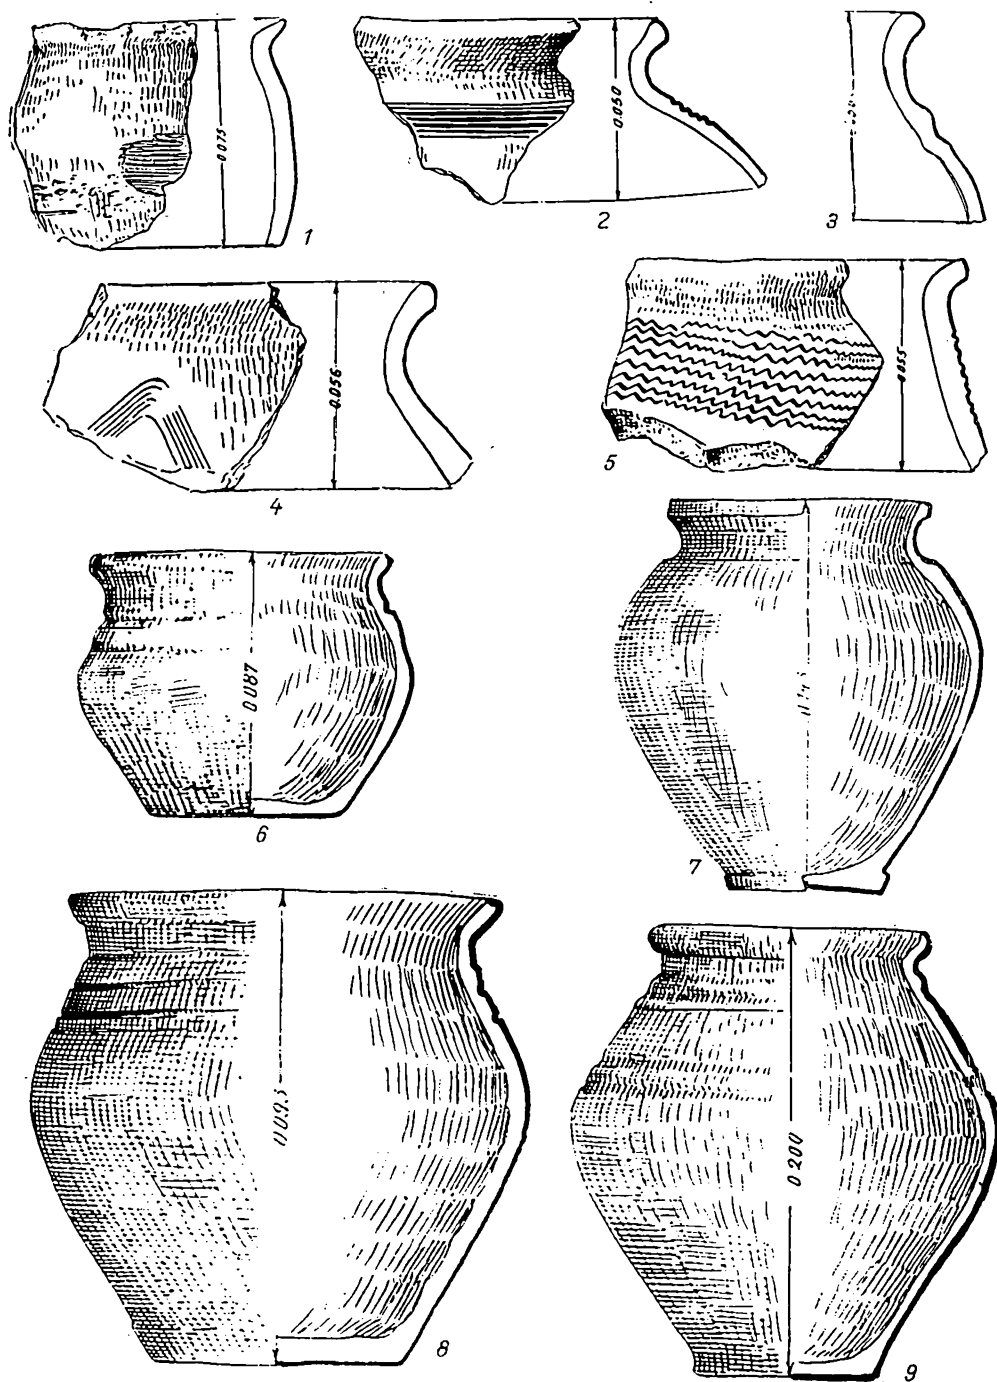 0.075
1
0.050
2
3
0.056
4
0.055
5
0.087
6
7
0.095
8
0.200
9